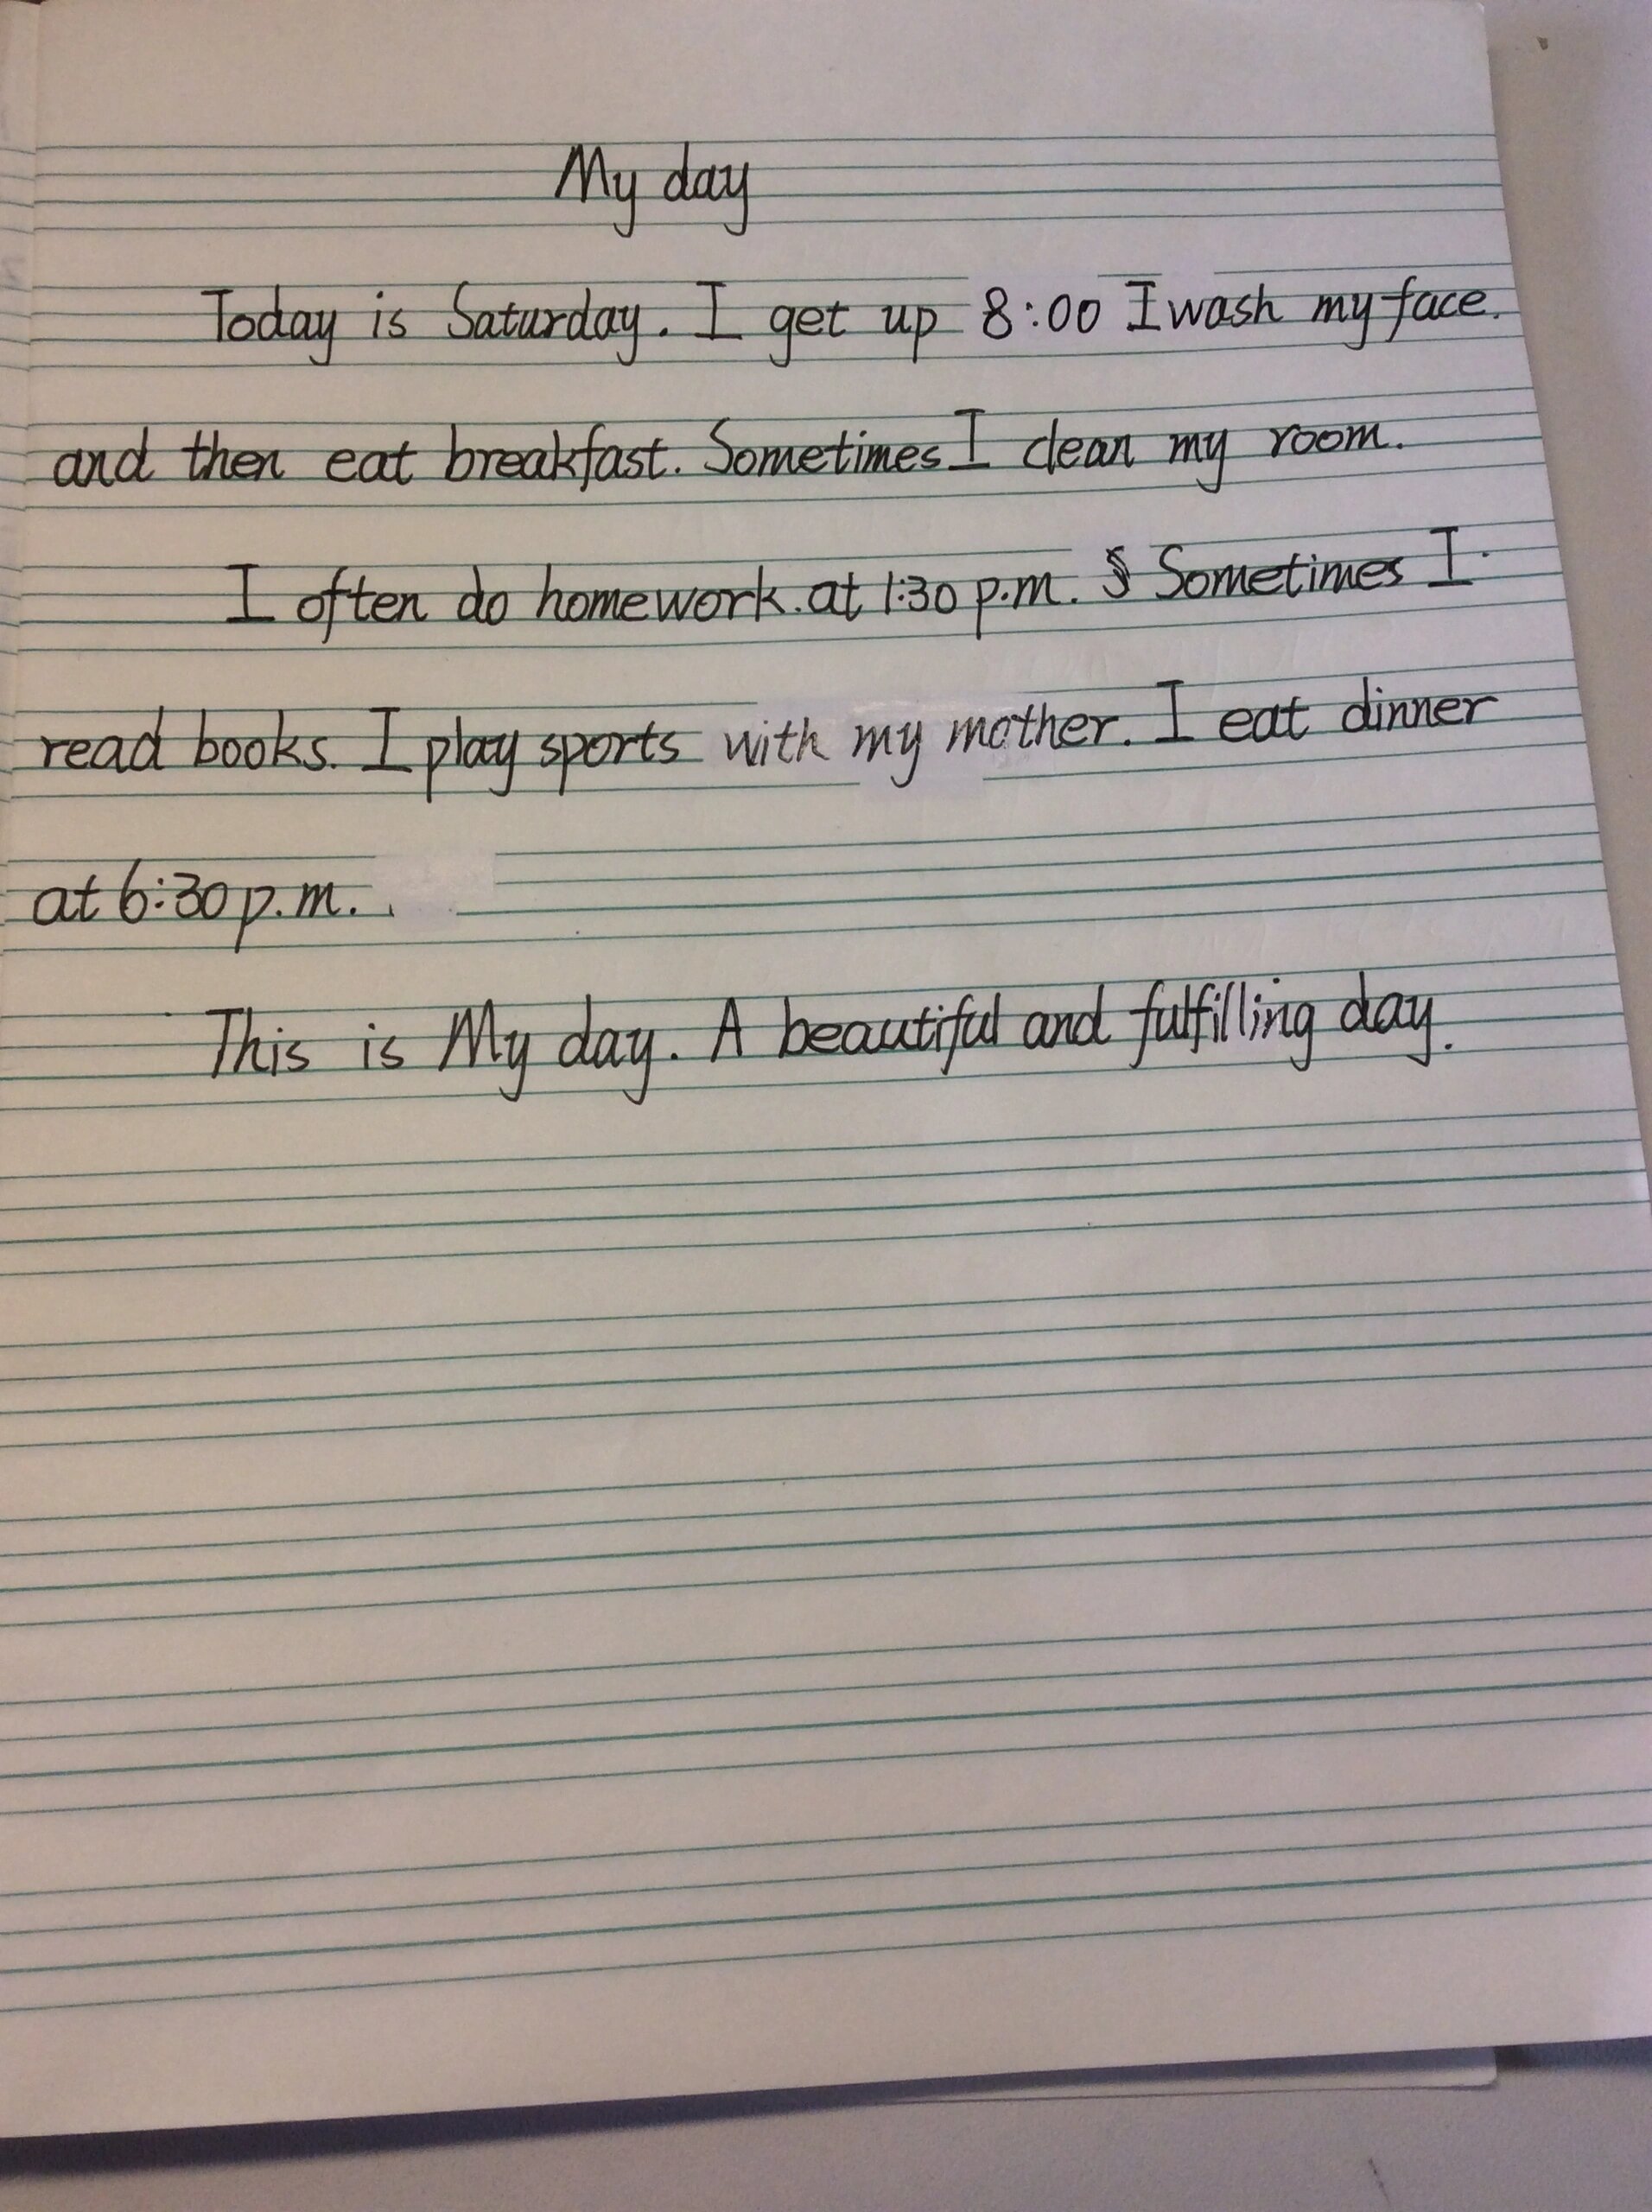 My day
Today is Saturday. I get up 8:00 I wash my face.
and then eat breakfast. Sometimes I clean my room.
I often do homework. at 1:30 p.m. Sometimes I
read books. I play sports with my mother. I eat dinner
at 6:30 p.m. .
This is My day. A beautiful and fulfilling day.